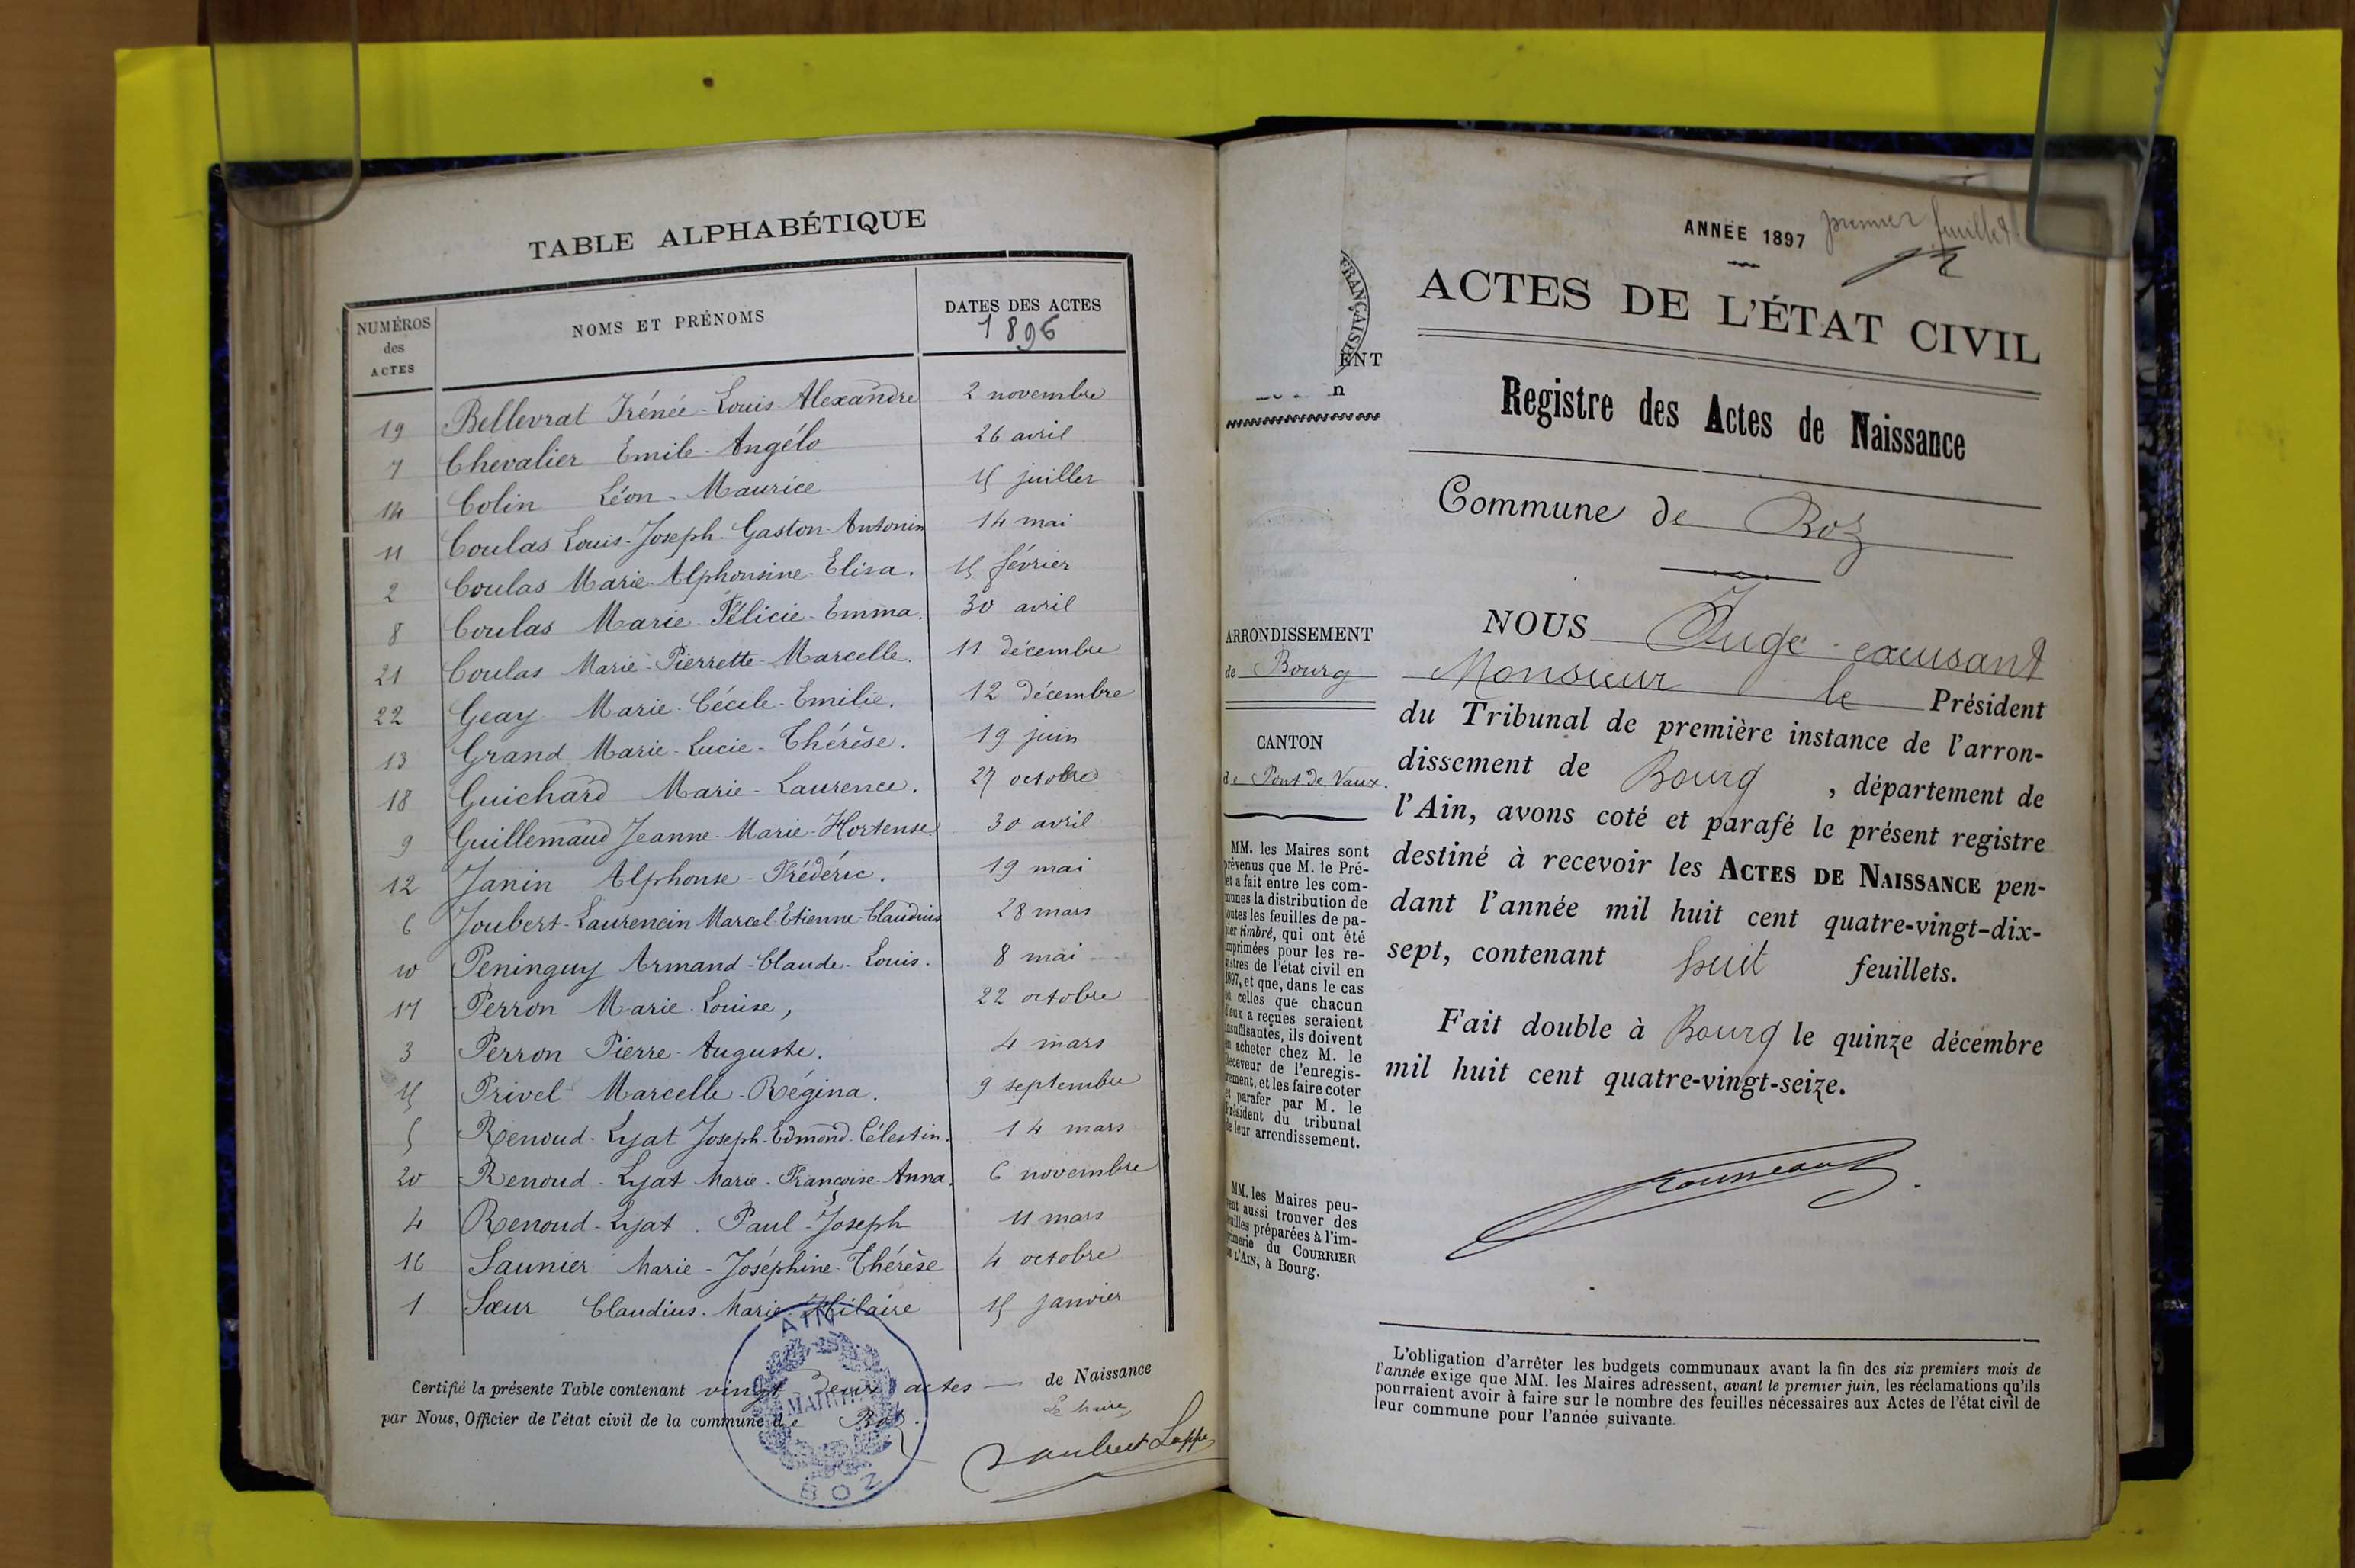 TABLE ALPHABÉTIQUE
NUMÉROS des ACTES NOMS ET PRÉNOMS DATES DES ACTES
1896
19 Bellevrat Irénée-Louis-Alexandre 2 novembre
7 Chevalier Emile-Angélo 26 avril
14 Colin Léon-Maurice 15 juillet
11 Coulas Louis-Joseph-Gaston-Antonin 14 mai
2 Coulas Marie-Alphonsine-Elisa. 15 février
8 Coulas Marie-Félicie-Emma. 30 avril
21 Coulas Marie-Pierrette-Marcelle. 11 décembre
22 Geay Marie-Cécile-Emilie. 12 décembre
13 Grand Marie-Lucie-Thérèse. 19 juin
18 Guichard Marie-Laurence. 27 octobre
9 Guillemaud Jeanne-Marie-Hortense 30 avril
12 Janin Alphonse-Frédéric. 19 mai
6 Joubert-Laurencin Marcel-Etienne-Claudius 28 mars
10 Peninguy Armand-Claude-Louis. 8 mai
17 Perron Marie-Louise, 22 octobre
3 Perron Pierre-Auguste. 4 mars
15 Privel Marcelle-Régina. 9 septembre
5 Renoud-Lyat Joseph-Edmond-Célestin. 14 mars
20 Renoud-Lyat Marie-Françoise-Anna. 6 novembre
4 Renoud-Lyat. Paul-Joseph 11 mars
16 Saunier Marie-Joséphine-Thérèse 4 octobre
1 Sœur Claudius-Marie-Hilaire 15 janvier
Certifié la présente Table contenant vingt-deux actes de Naissance
par Nous, Officier de l'état civil de la commune de Boz.
Le Maire,
AIN
MAIRIE
BOZ
FRANÇAISE
ENT
n
ARRONDISSEMENT
de Bourg
CANTON
de Pont de Vaux.
MM. les Maires sont
prévenus que M. le Pré-
et a fait entre les com-
munes la distribution de
toutes les feuilles de pa-
pier timbré, qui ont été
imprimées pour les re-
istres de l'état civil en
1897, et que, dans le cas
où celles que chacun
d'eux a reçues seraient
insuffisantes, ils doivent
en acheter chez M. le
Receveur de l'enregis-
rement, et les faire coter
et parafer par M. le
Président du tribunal
de leur arrondissement.
MM. les Maires peu-
vent aussi trouver des
feuilles préparées à l'im-
primerie du COURRIER
DE L'AIN, à Bourg.
ANNÉE 1897 premier feuillet
ACTES DE L'ÉTAT CIVIL
Registre des Actes de Naissance
Commune de Boz
NOUS Juge excusant
Monsieur le Président
du Tribunal de première instance de l'arron-
dissement de Bourg, département de
l'Ain, avons coté et parafé le présent registre
destiné à recevoir les ACTES DE NAISSANCE pen-
dant l'année mil huit cent quatre-vingt-dix-
sept, contenant huit feuillets.
Fait double à Bourg le quinze décembre
mil huit cent quatre-vingt-seize.
L'obligation d'arrêter les budgets communaux avant la fin des six premiers mois de
l'année exige que MM. les Maires adressent, avant le premier juin, les réclamations qu'ils
pourraient avoir à faire sur le nombre des feuilles nécessaires aux Actes de l'état civil de
leur commune pour l'année suivante.